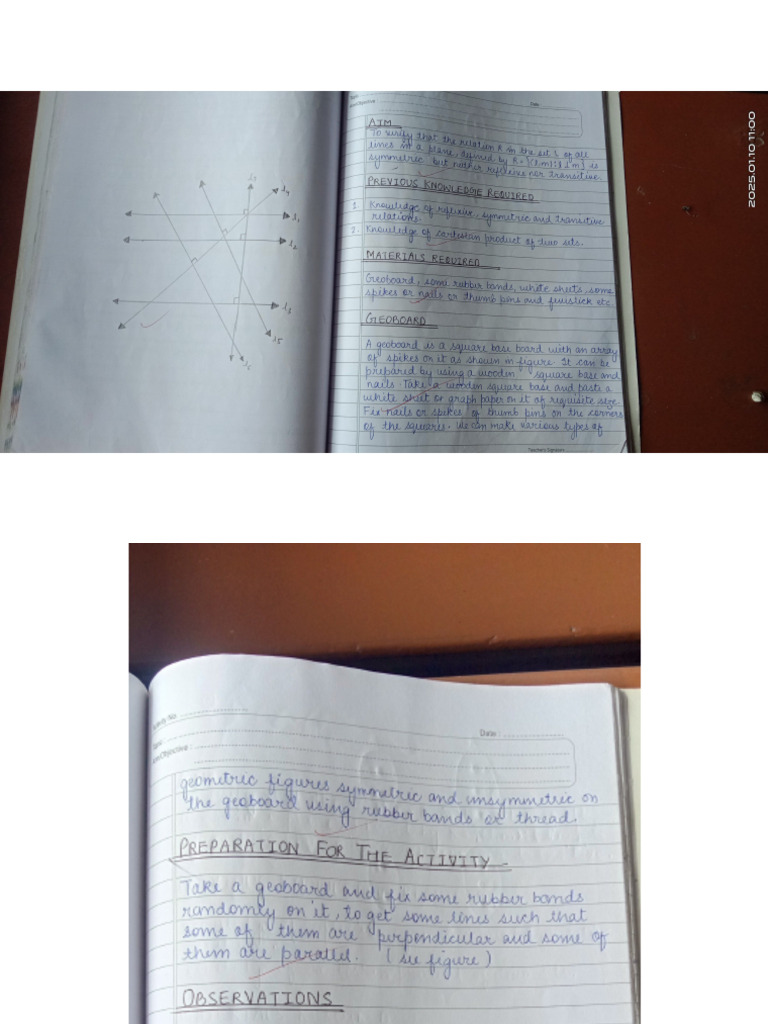 l3
l4
l1
l2
l3
l5
Date
AIM
To verify that the relation R in the set L of all
lines in a plane, defined by R = {(l,m): l ⊥ m} is
symmetric but neither reflexive nor transitive.
PREVIOUS KNOWLEDGE REQUIRED
1. Knowledge of reflexive, symmetric and transitive
relations.
2. Knowledge of cartesian product of two sets.
MATERIALS REQUIRED
Geoboard, some rubber bands, white sheets, some
spikes or nails or thumb pins and fevistick etc.
GEOBOARD
A geoboard is a square base board with an array
of spikes on it as shown in figure. It can be
prepared by using a wooden square base and
nails. Take a wooden square base and paste a
white sheet or graph paper on it of requisite size.
Fix nails or spikes of thumb pins on the corners
of the squares. We can make various types of
Teacher's Signature
2025.01.10 11:00
Activity No.
Date :
geometric figures symmetric and unsymmetric on
the geoboard using rubber bands or thread.
PREPARATION FOR THE ACTIVITY
Take a geoboard and fix some rubber bands
randomly on it, to get some lines such that
some of them are perpendicular and some of
them are parallel. (see figure)
OBSERVATIONS